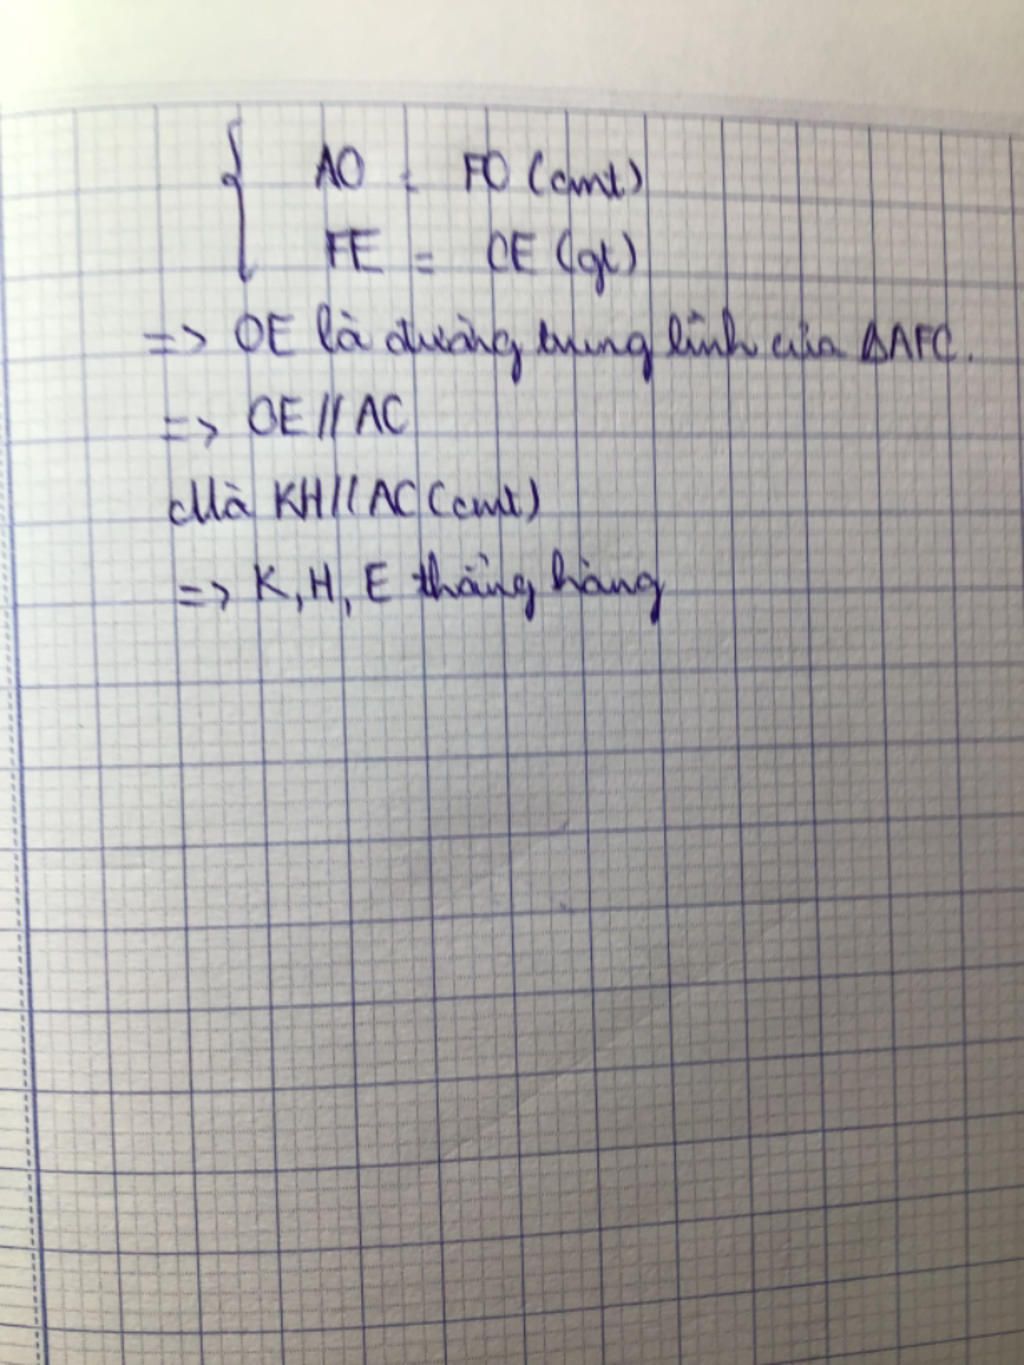 { AO = FO (cmt)
FE = CE (gt)
=> OE là đường trung bình của ΔAFC.
=> OE // AC
Mà KH // AC (cmt)
=> K, H, E thẳng hàng